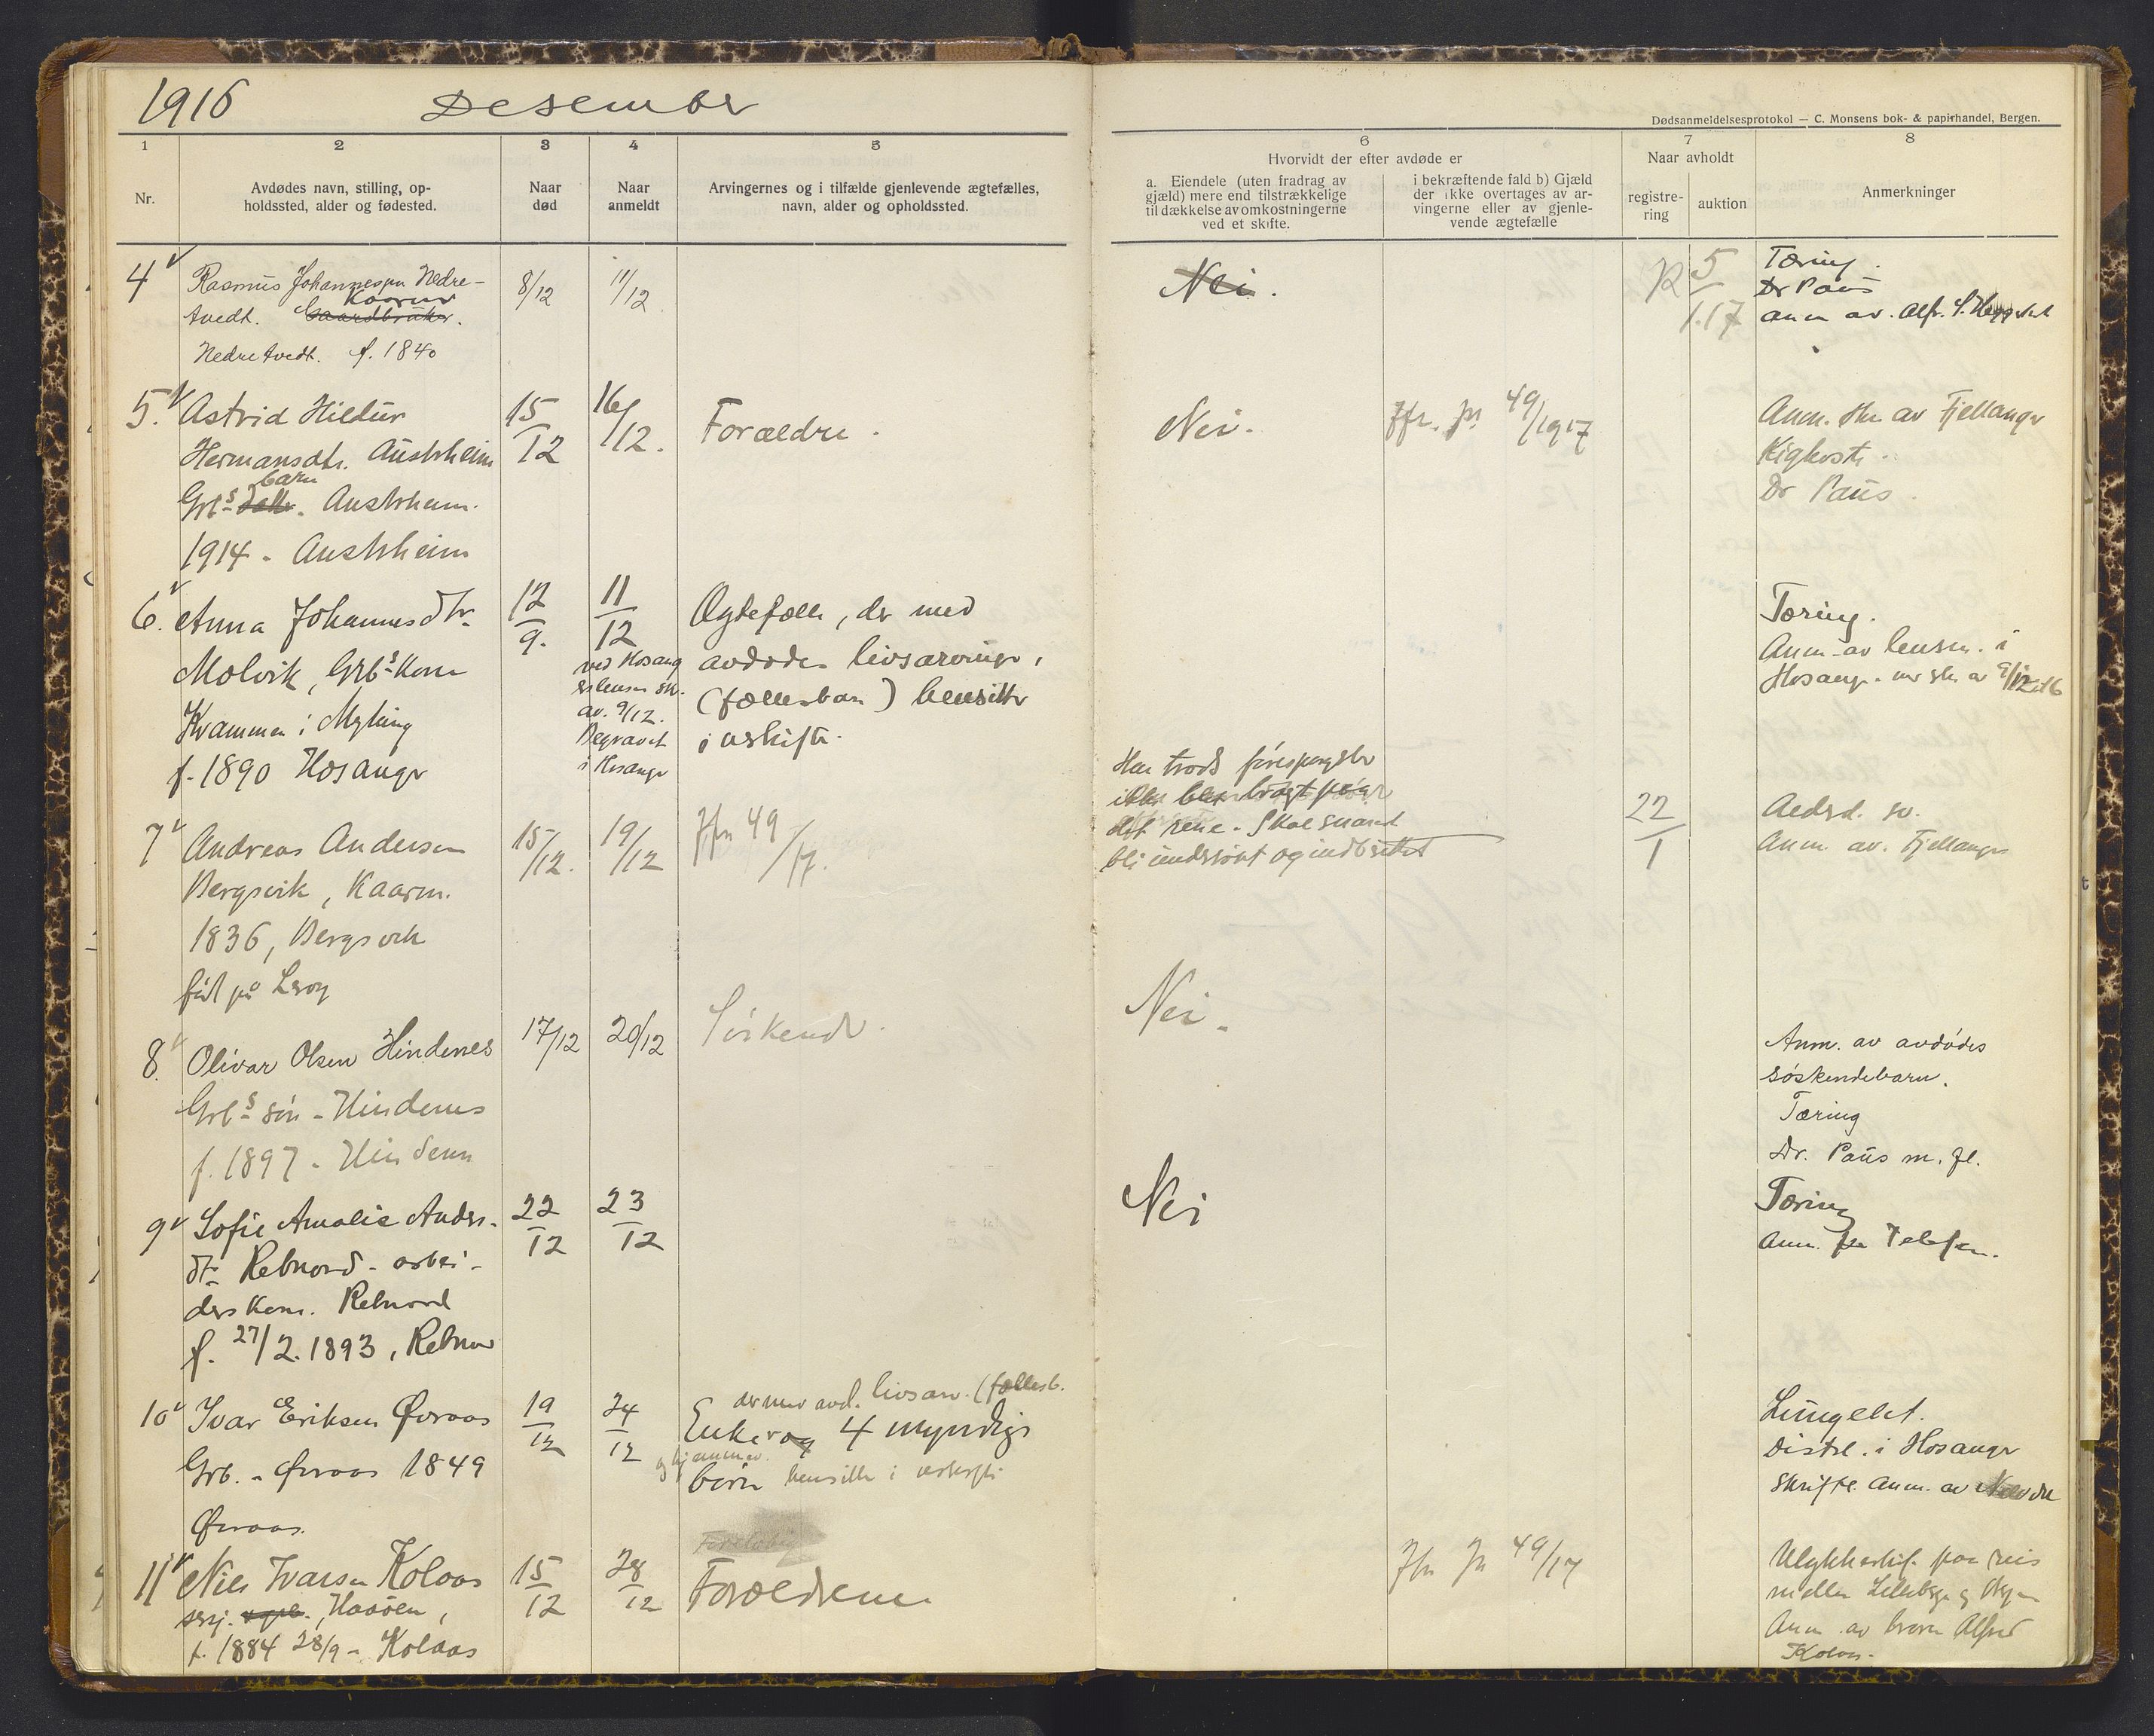 1916 Desember
Dødsanmeldelsesprotokol — C. Monsens bok- & papirhandel, Bergen.
1
2
3
4
5
6
7
8
Nr.
Avdødes navn, stilling, op-
holdssted, alder og fødested.
Naar
død
Naar
anmeldt
Arvingernes og i tilfælde gjenlevende ægtefælles,
navn, alder og opholdssted.
Hvorvidt der efter avdøde er
a. Eiendele (uten fradrag av
gjæld) mere end tilstrækkelige
til dækkelse av omkostningerne
ved et skifte.
i bekræftende fald b) Gjæld
der ikke overtages av ar-
vingerne eller av gjenle-
vende ægtefælle
Naar avholdt
registre-
ring
auktion
Anmerkninger
4
Rasmus Johannessen Nedre-
Kaarm
tvedt. Gaardbruker.
Nedretvedt. f. 1840
8/12
11/12
Nei.
R 5
1.17
Tæring.
Dr Paus
anm av. Alfr. S.
5.
Astrid Hildur
Hermansdtr. Austrheim
barn
Grbs datr. Austrheim.
1914 - Austrheim
15
12
16/12.
Forældre.
Nei.
Jfr. pr 49/1917
Anm. skr av Fjellanger
Kighoste.
Dr Paus.
6.
Anna Johannesdtr.
Molvik, Grbs Kone
Kvammen i Myking
f. 1890 Hosanger
12
9.
11
12
ved Hosang
erlensm skr.
av. 9/12.
Begravet
i Hosanger
Ægtefælle, der med
avdødes livsarvinger,
(fællesbarn) hensitter
i uskifte.
Tæring.
Anm. av lensm. i
Hosang. ved skr. av 9/12.16
7
Andreas Andersen
Bergsvik, Kaarm.
1836, Bergsvik
född på Leroy
15/12.
19/12
Jfr 49/17.
Har trods forespørgsler
ikke blet bragt paa
det rene. Skal snarest
bli undersøkt og indberettet
22
1
Aldrd. sv.
Anm. av. Fjellanger
8.
Olivar Olsen Hindenes
Grbs søn - Hindenes
f. 1897 - Hindenes
17/12
20/12
Søskende.
Nei.
Anm. av avdødes
søskendebarn.
Tæring
Dr. Paus m. fl.
9
Sofie Amalie Anders-
dtr Rebnord - arbei-
ders Kone. Rebnord
f. 27/2. 1893, Rebnor
22
12
23
12
Nei
Tæring
Anm. pr Telefon.
10
Ivar Eriksen Øvraas
Grb. - Øvraas 1849
Øvraas.
19
12
24
12
der med avd. livsarv. (fællesb.
Enke og 4 myndige
børn hensitter i uskifte
Lungebet.
Distrl. i Hosanger
Skriftl. anm. av
11
Nils Ivarsen Kolaas
sersj. Haaøen,
f. 1884 28/9 - Kolaas
15
12
28
12
Foreløbig
Forældrene.
Jfr Jr 49/17
Ulykkestilf. paa reis
mellem Lillebergen og Bergen
Anm. av broren Alfred
Kolaas.